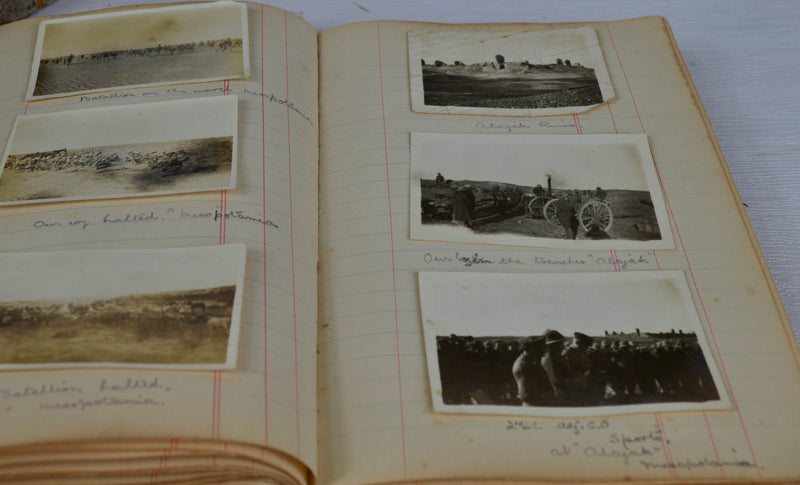 Batallion on the march mesopotamia
Our coy halted. "mesopotamia
Batallion halted.
mesopotamia.
Alajak Ruins
Our in the trenches "Alajak"
2nd i/c adj. C.O
Sports.
at "Alajak"
mesopotamia.